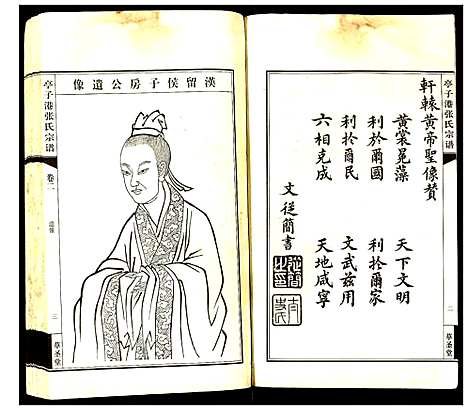 軒轅黃帝聖像贊
黃裳冕藻 天下文明
利於爾國 利於爾家
利於爾民 文武兹用
六相克成 天地咸寧
文從簡書
二
草圣堂
漢留侯子房公遺像
亭子港张氏宗谱
卷二
遺像
三
草圣堂